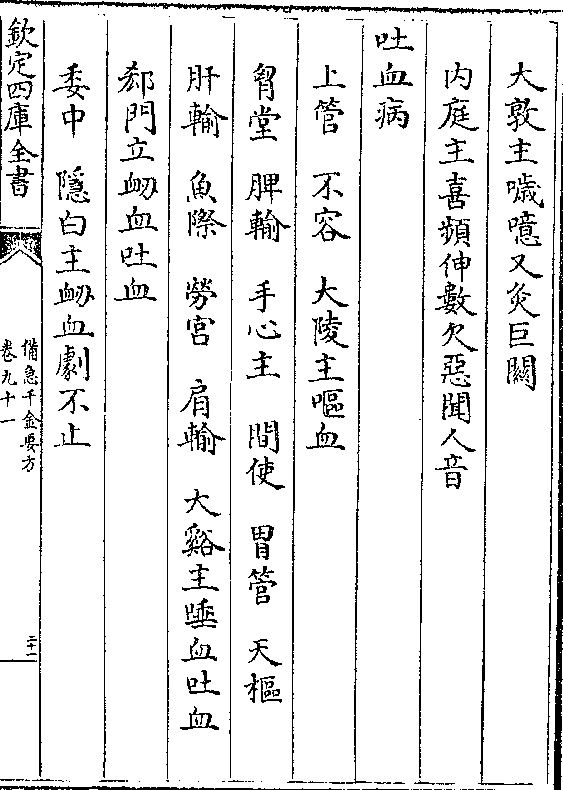 大敦主噦噫又灸巨闕
内庭主喜頻伸數欠惡聞人音
吐血病
上管　不容　大陵主嘔血
胷堂　脾輸　手心主　間使　胃管　天樞
肝輸　魚際　勞宫　肩輸　大谿主唾血吐血
郄門立衂血吐血
委中　隱白主衂血劇不止
欽定四庫全書
備急千金要方
卷九十一
二十一